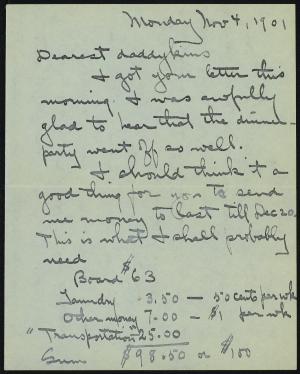 Monday Nov 4, 1901
Dearest daddykins
I got your letter this
morning. I was awfully
glad to hear that the dinner
party went off so well.
I should think it a
good thing for you to send
me money to last till Dec 20.
This is what I shall probably
need
Board $63
Laundry 3.50 — 50 cents per wk
Other money 7.00 — $1 per wk
"Transportation" 25.00
Sum $98.50 or $100